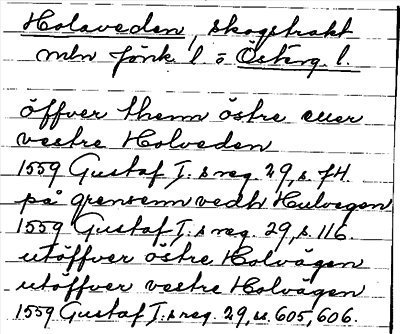 Holaveden, skogstrakt
mln Jönk. l. o Österg. l.
öffver them östre eller
vestre Holveden
1559 Gustaf I:s reg. 29, s. 74.
på grensenn vedh Hulvegen
1559 Gustaf I:s reg. 29, s. 116.
utöffver östre Holvägen
utöffver vestre Holvägen
1559 Gustaf I:s reg. 29, s. 605, 606.